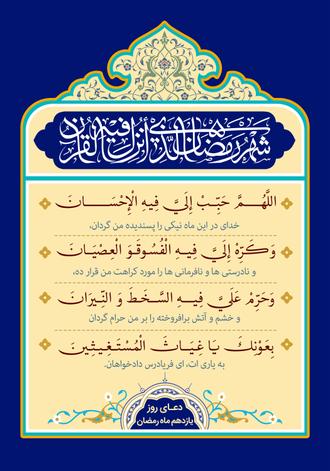 شَهْرُ رَمَضَانَ الَّذِي أُنْزِلَ فِيهِ الْقُرْآنُ
اللَّهُمَّ حَبِّبْ إِلَيَّ فِيهِ الْإِحْسَانَ
خدای در این ماه نیکی را پسندیده من گردان،
وَكَرِّهْ إِلَيَّ فِيهِ الْفُسُوقَ وَ الْعِصْيَانَ
و نادرستی ها و نافرمانی ها را مورد کراهت من قرار ده،
وَحَرِّمْ عَلَيَّ فِيهِ السَّخَطَ وَ النِّيرَانَ
و خشم و آتش برافروخته را بر من حرام گردان
بِعَوْنِكَ يَا غِيَاثَ الْمُسْتَغِيثِينَ
به یاری ات، ای فریادرس دادخواهان.
دعای روز
یازدهم ماه رمضان